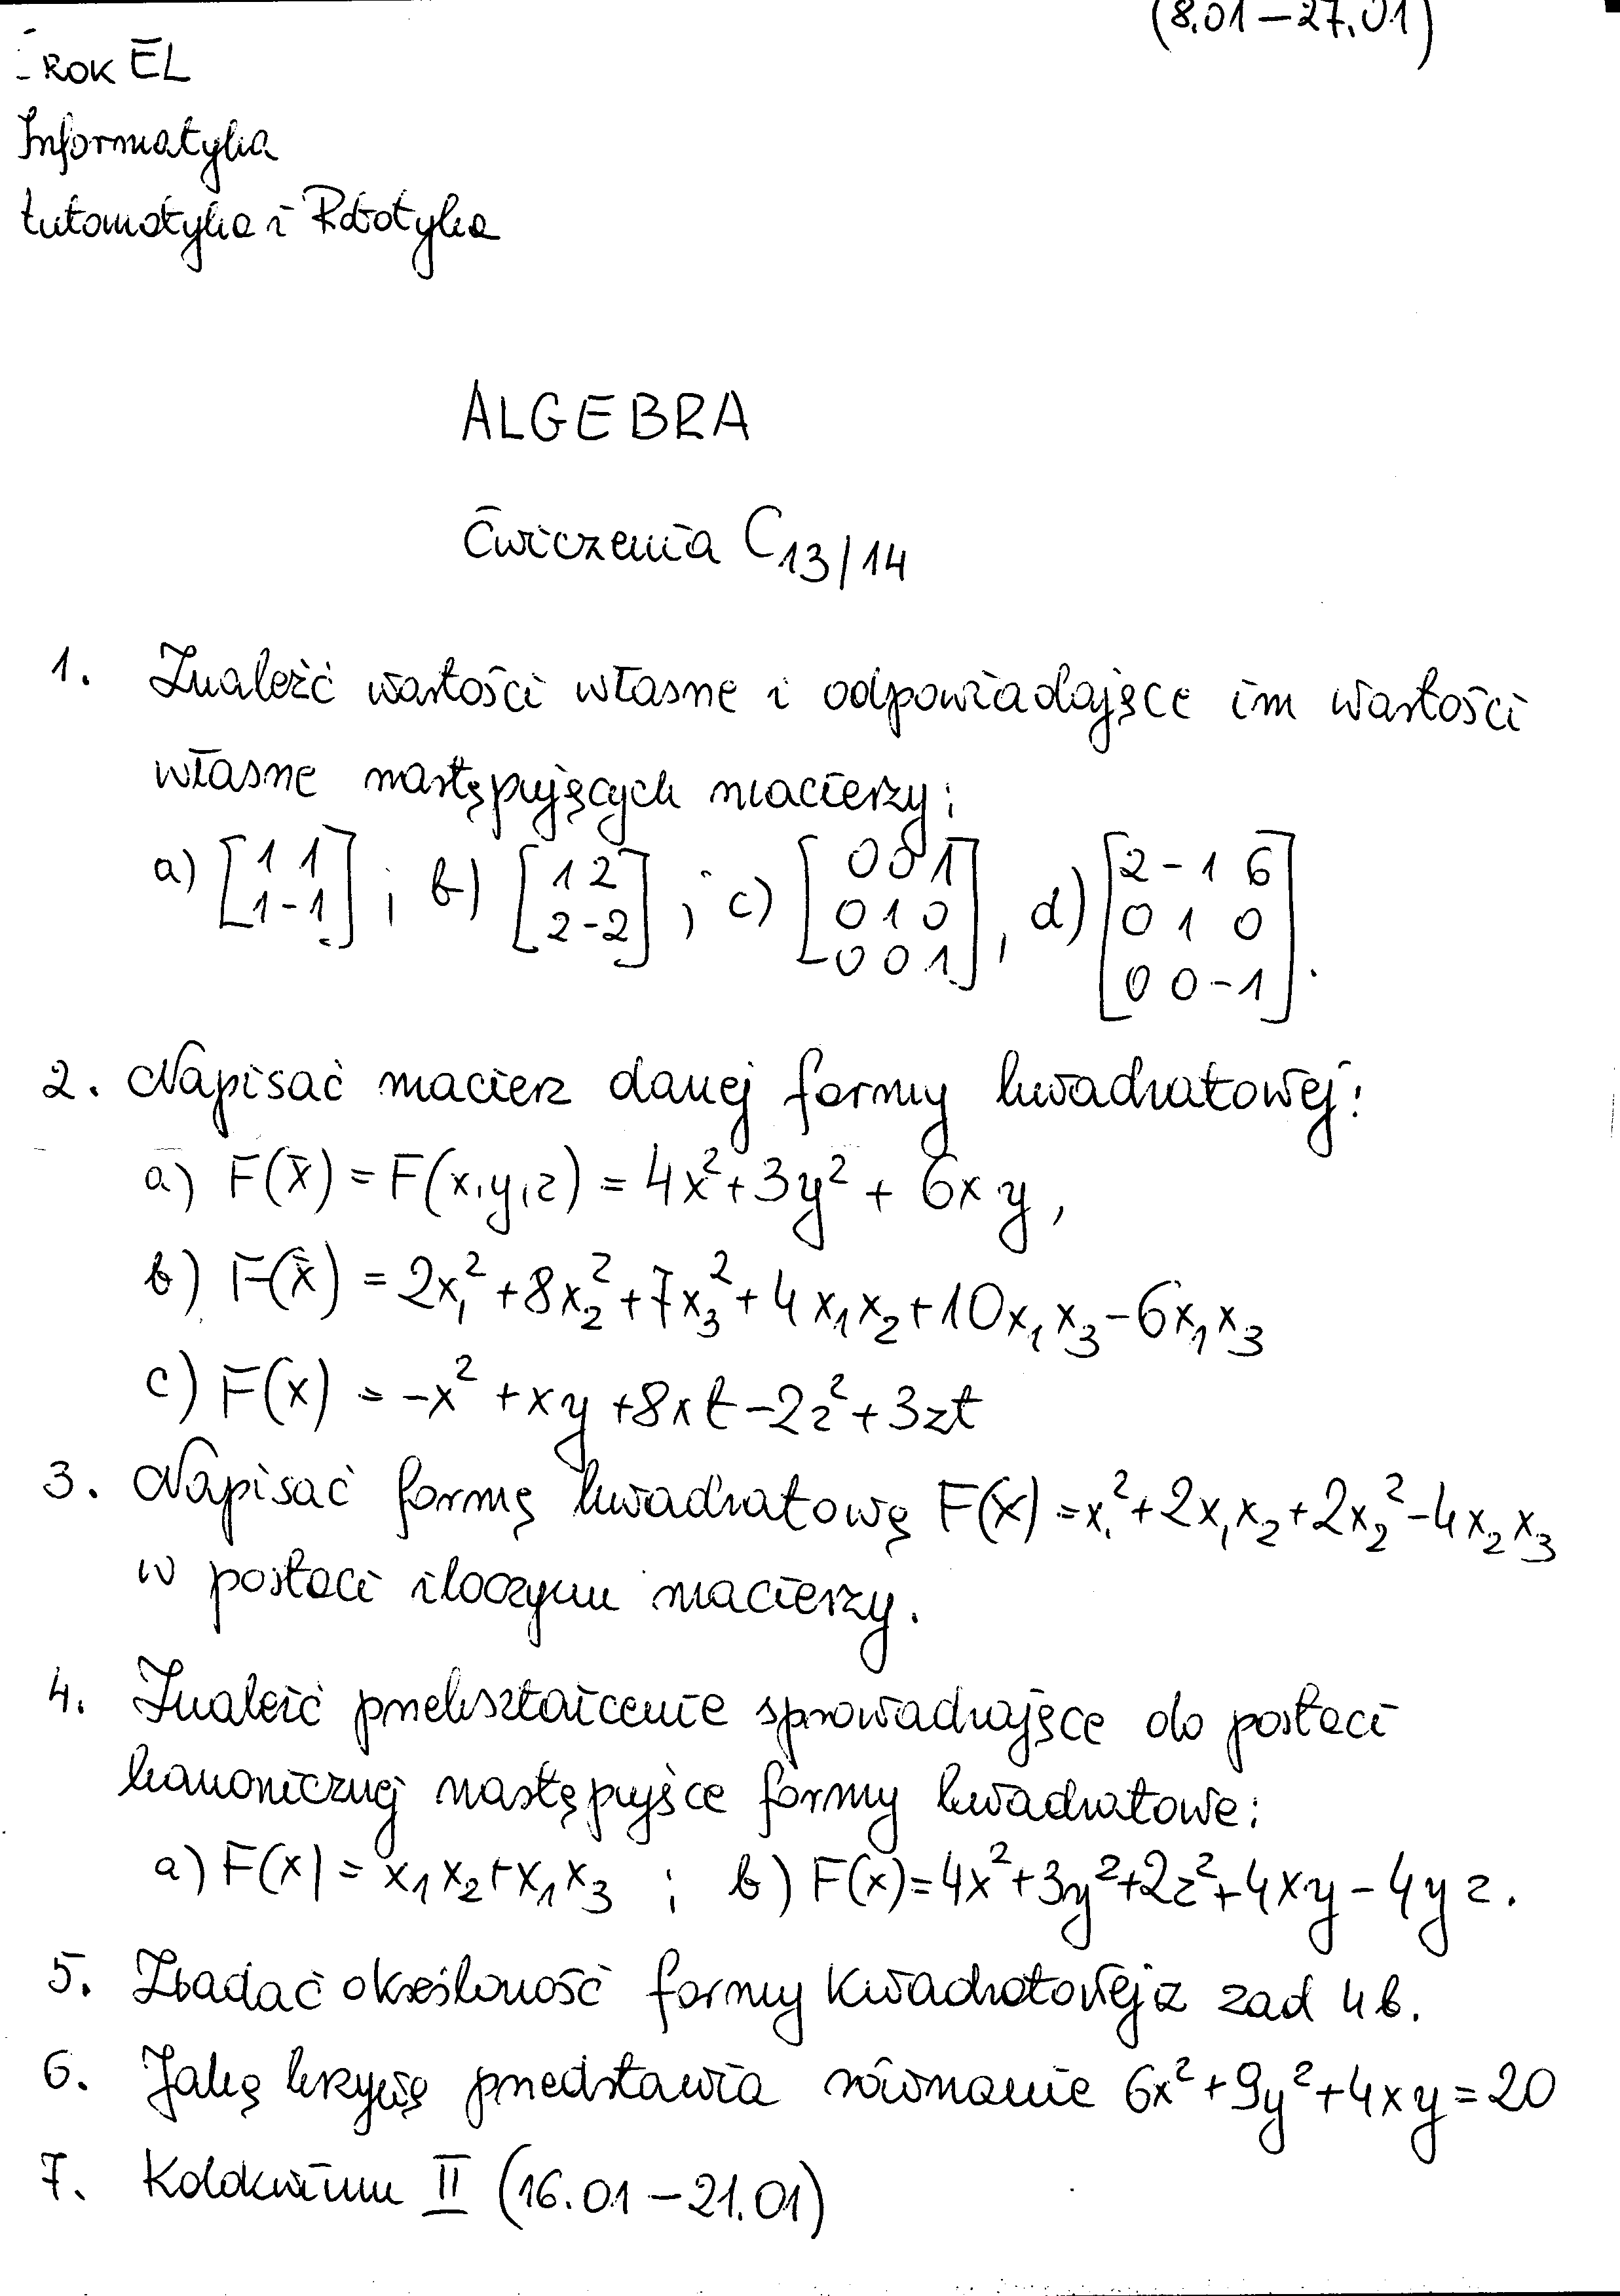 (8.01 – 27.01)
- ROK EL
Informatyka
Automatyka i Robotyka
ALGEBRA
Ćwiczenia C13/14
1. Znaleźć wartości własne i odpowiadające im wartości
własne następujących macierzy:
a) [1 1; 1 -1] ; b) [1 2; 2 -2] ; c) [0 0 1; 0 1 0; 0 0 1] , d) [2 -1 6; 0 1 0; 0 0 -1] .
2. Napisać macierz danej formy kwadratowej:
a) F(x̄) = F(x,y,z) = 4x² + 3y² + 6xy ,
b) F(x̄) = 2x₁² + 8x₂² + 7x₃² + 4x₁x₂ + 10x₁x₃ – 6x₁x₃
c) F(x) = –x² + xy + 8xt – 2z² + 3zt
3. Napisać formę kwadratową F(x) = x₁² + 2x₁x₂ + 2x₂² – 4x₂x₃
w postaci iloczynu macierzy.
4. Znaleźć przekształcenie sprowadzające do postaci
kanonicznej następujące formy kwadratowe:
a) F(x) = x₁x₂ + x₁x₃ ; b) F(x) = 4x² + 3y² + 2z² + 4xy – 4yz .
5. Zbadać określoność formy kwadratowej z zad 4b.
6. Jaką krzywą przedstawia równanie 6x² + 9y² + 4xy = 20
7. Kolokwium II (16.01 – 21.01)